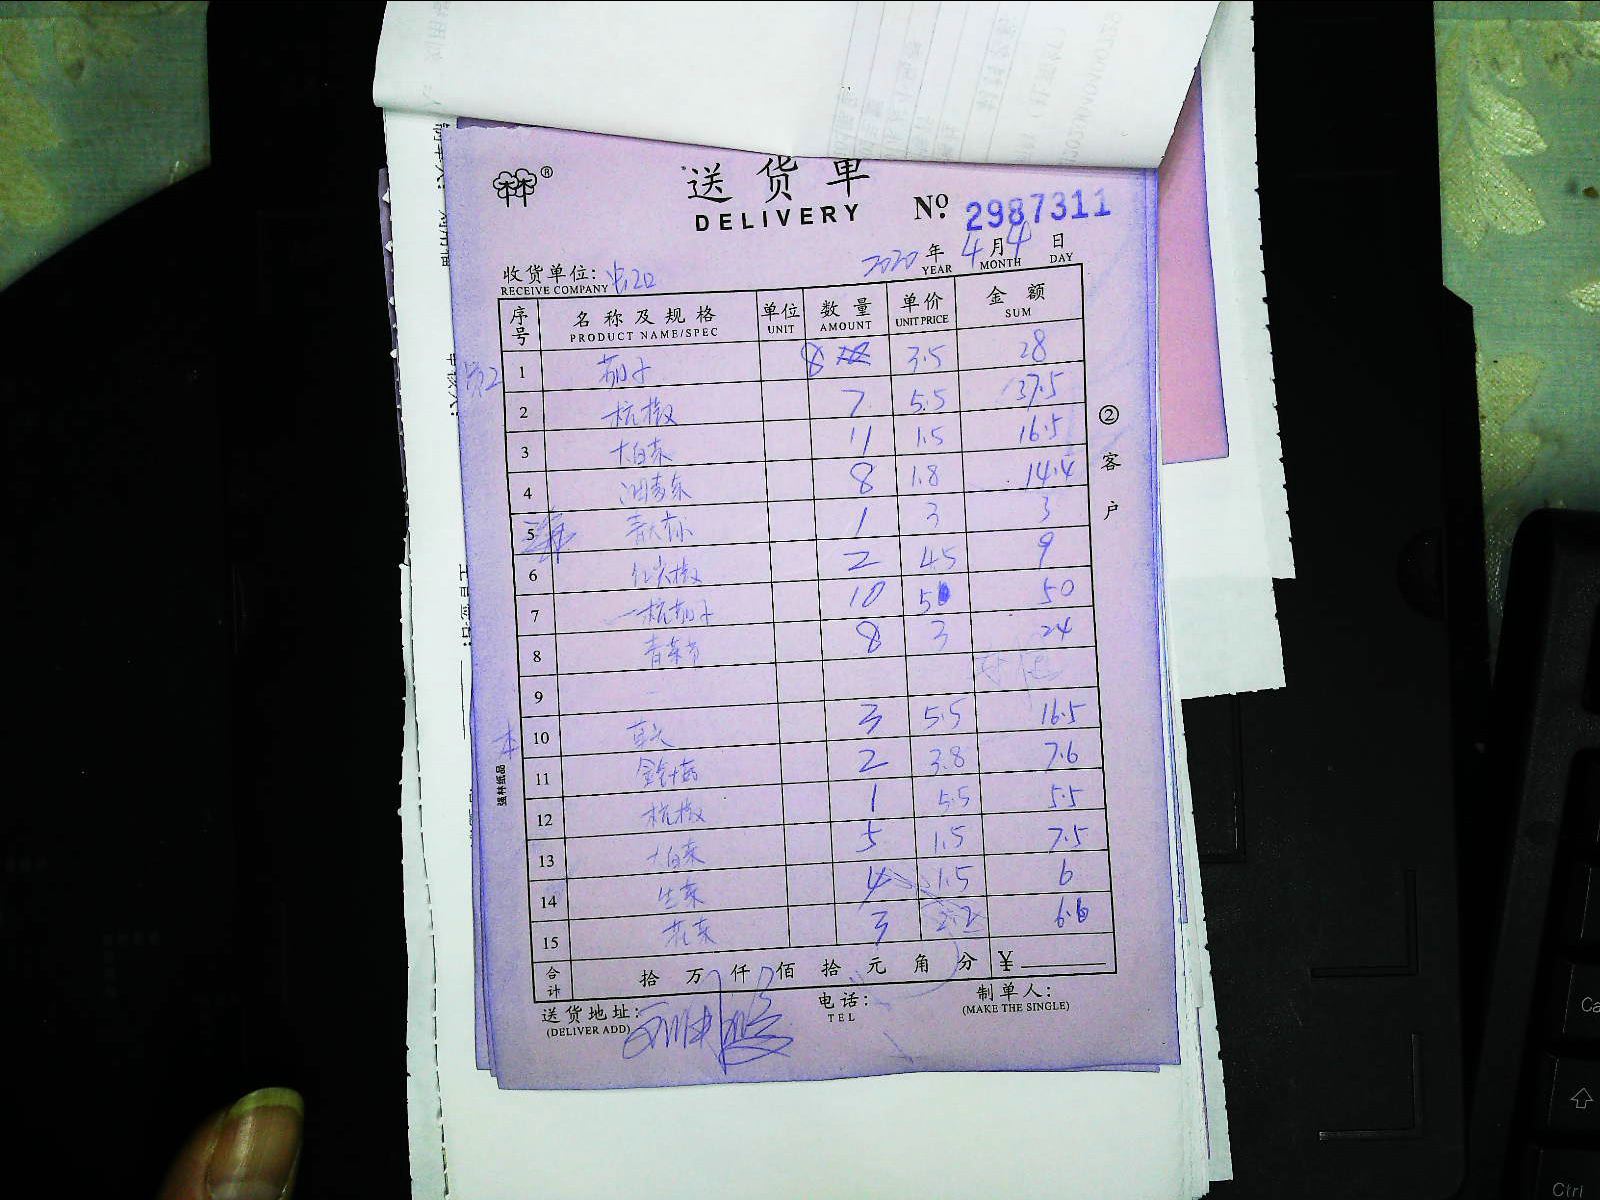 送货单
DELIVERY
№ 2987311
2020 年 4 月 4 日
YEAR MONTH DAY
收货单位:
RECEIVE COMPANY
序号 名称及规格 单位 数量 单价 金额
PRODUCT NAME/SPEC UNIT AMOUNT UNIT PRICE SUM
1 茄子 8 3.5 28
2 杭椒 7 5.5 37.5
3 大白菜 11 1.5 16.5
4 油麦菜 8 1.8 14.4
5 1 3 3
6 红尖椒 2 4.5 9
7 杭茄子 10 5 50
8 青菜 8 3 24
9
10 3 5.5 16.5
11 金针菇 2 3.8 7.6
12 杭椒 1 5.5 5.5
13 大白菜 5 1.5 7.5
14 生菜 4 1.5 6
15 花菜 3 2.2 6.6
合计 拾 万 仟 佰 拾 元 角 分 ¥
送货地址: 电话: 制单人:
(DELIVER ADD) TEL (MAKE THE SINGLE)
②客户
强林纸品
Ctrl